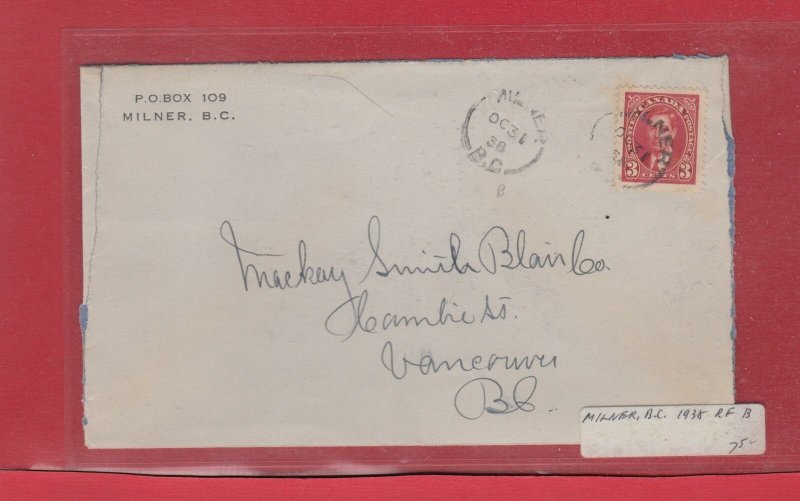 P.O.BOX 109
MILNER, B.C.
MILNER
OC 31
38
B.C
B
POSTES CANADA POSTAGE
3 CENTS 3
Mackay Smith Blair Co
Cambie St.
Vancouver
B.C.
MILNER, B.C. 1938 RF B
75-